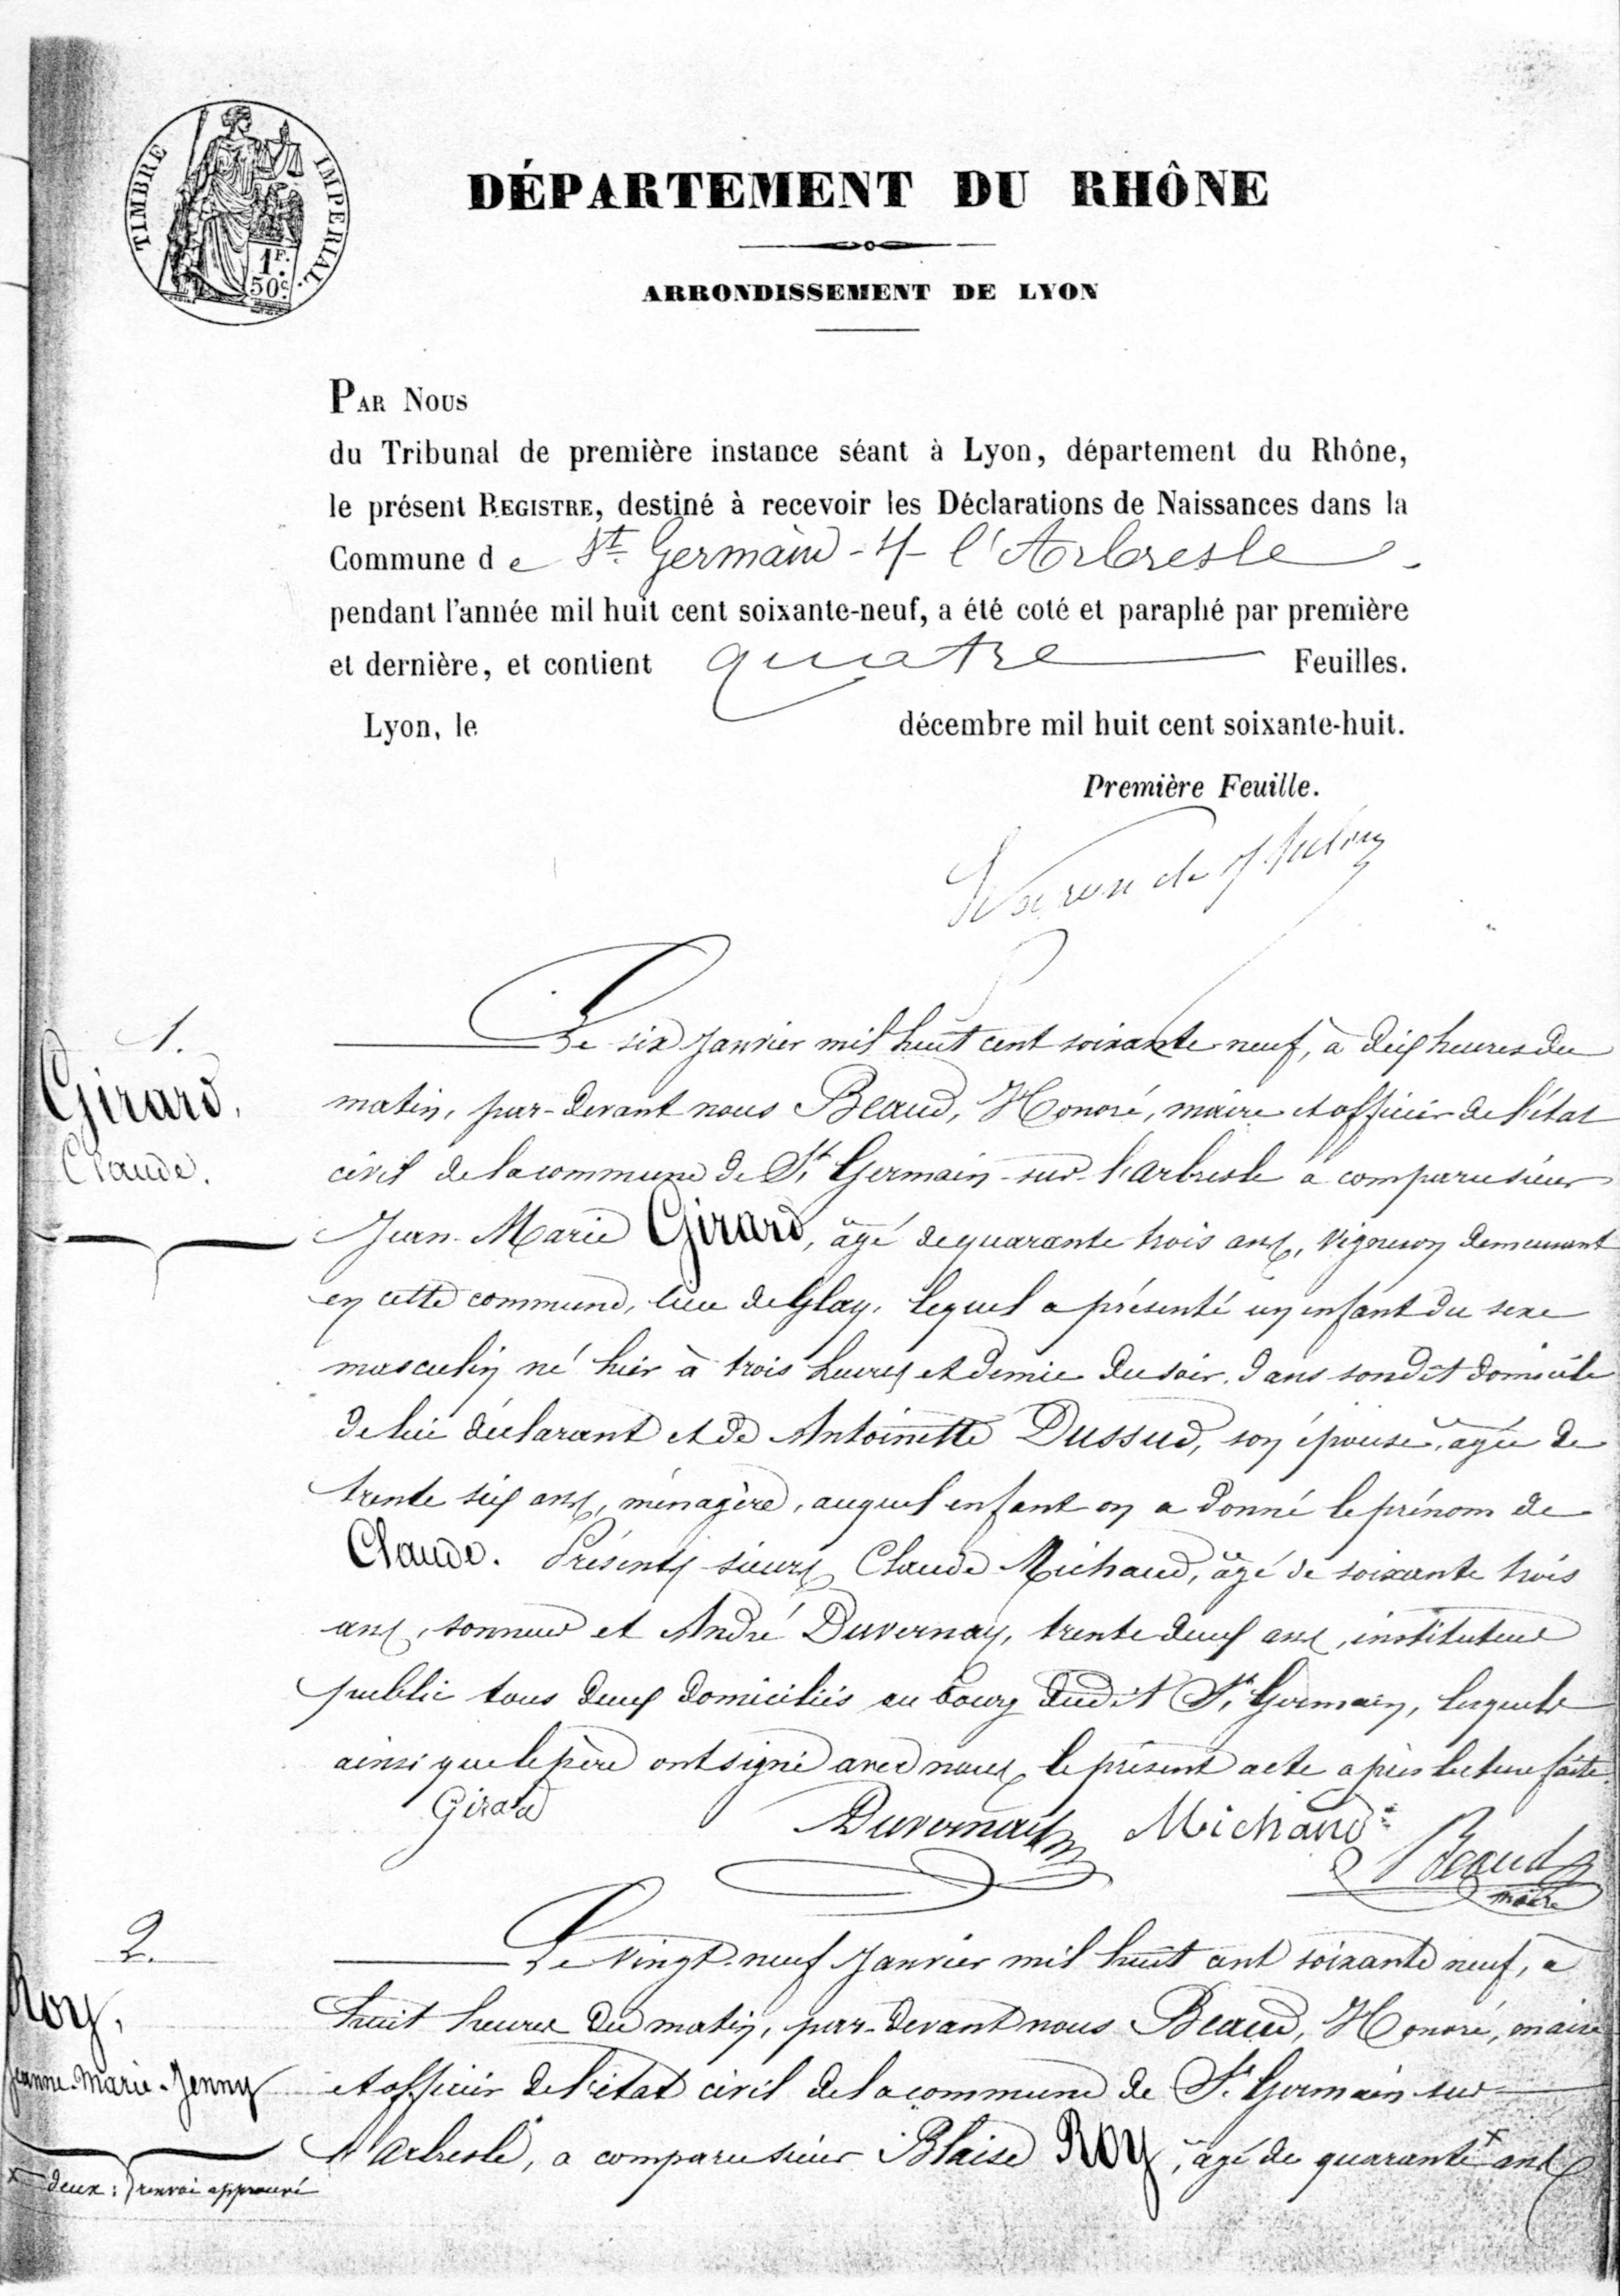 TIMBRE IMPERIAL.
1F.
50c.
DÉPARTEMENT DU RHÔNE
ARRONDISSEMENT DE LYON
PAR NOUS
du Tribunal de première instance séant à Lyon, département du Rhône,
le présent REGISTRE, destiné à recevoir les Déclarations de Naissances dans la
Commune de St. Germain-s/- l'Arbresle
pendant l'année mil huit cent soixante-neuf, a été coté et paraphé par première
et dernière, et contient quatre Feuilles.
Lyon, le décembre mil huit cent soixante-huit.
Première Feuille.
1.
Girard,
Claude.
Le six Janvier mil huit cent soixante neuf, à dix heures du
matin, par-devant nous Beaud, Honoré, maire et officier de l'état
civil de la commune de St Germain-sur-l'arbresle a comparu sieur
Jean-Marie Girard, âgé de quarante trois ans, vigneron demeurant
en cette commune, lieu de Glay, lequel a présenté un enfant du sexe
masculin né hier à trois heures et demie du soir, dans son dit domicile
de lui déclarant et de Antoinette Dussud, son épouse, âgée de
trente six ans, ménagère, auquel enfant on a donné le prénom de
Claude. Présents sieurs Claude Michaud, âgé de soixante trois
ans, sonneur et André Duvernay, trente deux ans, instituteur
public tous deux domiciliés au bourg dudit St Germain, lesquels
ainsi que le père ont signé avec nous le présent acte après lecture faite.
Girard Duvernay Michaud Beaud
maire
2.
Roy,
Jeanne-Marie-Jenny
Le vingt-neuf Janvier mil huit cent soixante neuf, à
huit heures du matin, par-devant nous Beaud, Honoré, maire
et officier de l'état civil de la commune de St. Germain-sur
l'arbresle, a comparu sieur Blaise Roy, âgé de quarante x ans
x deux: renvoi approuvé